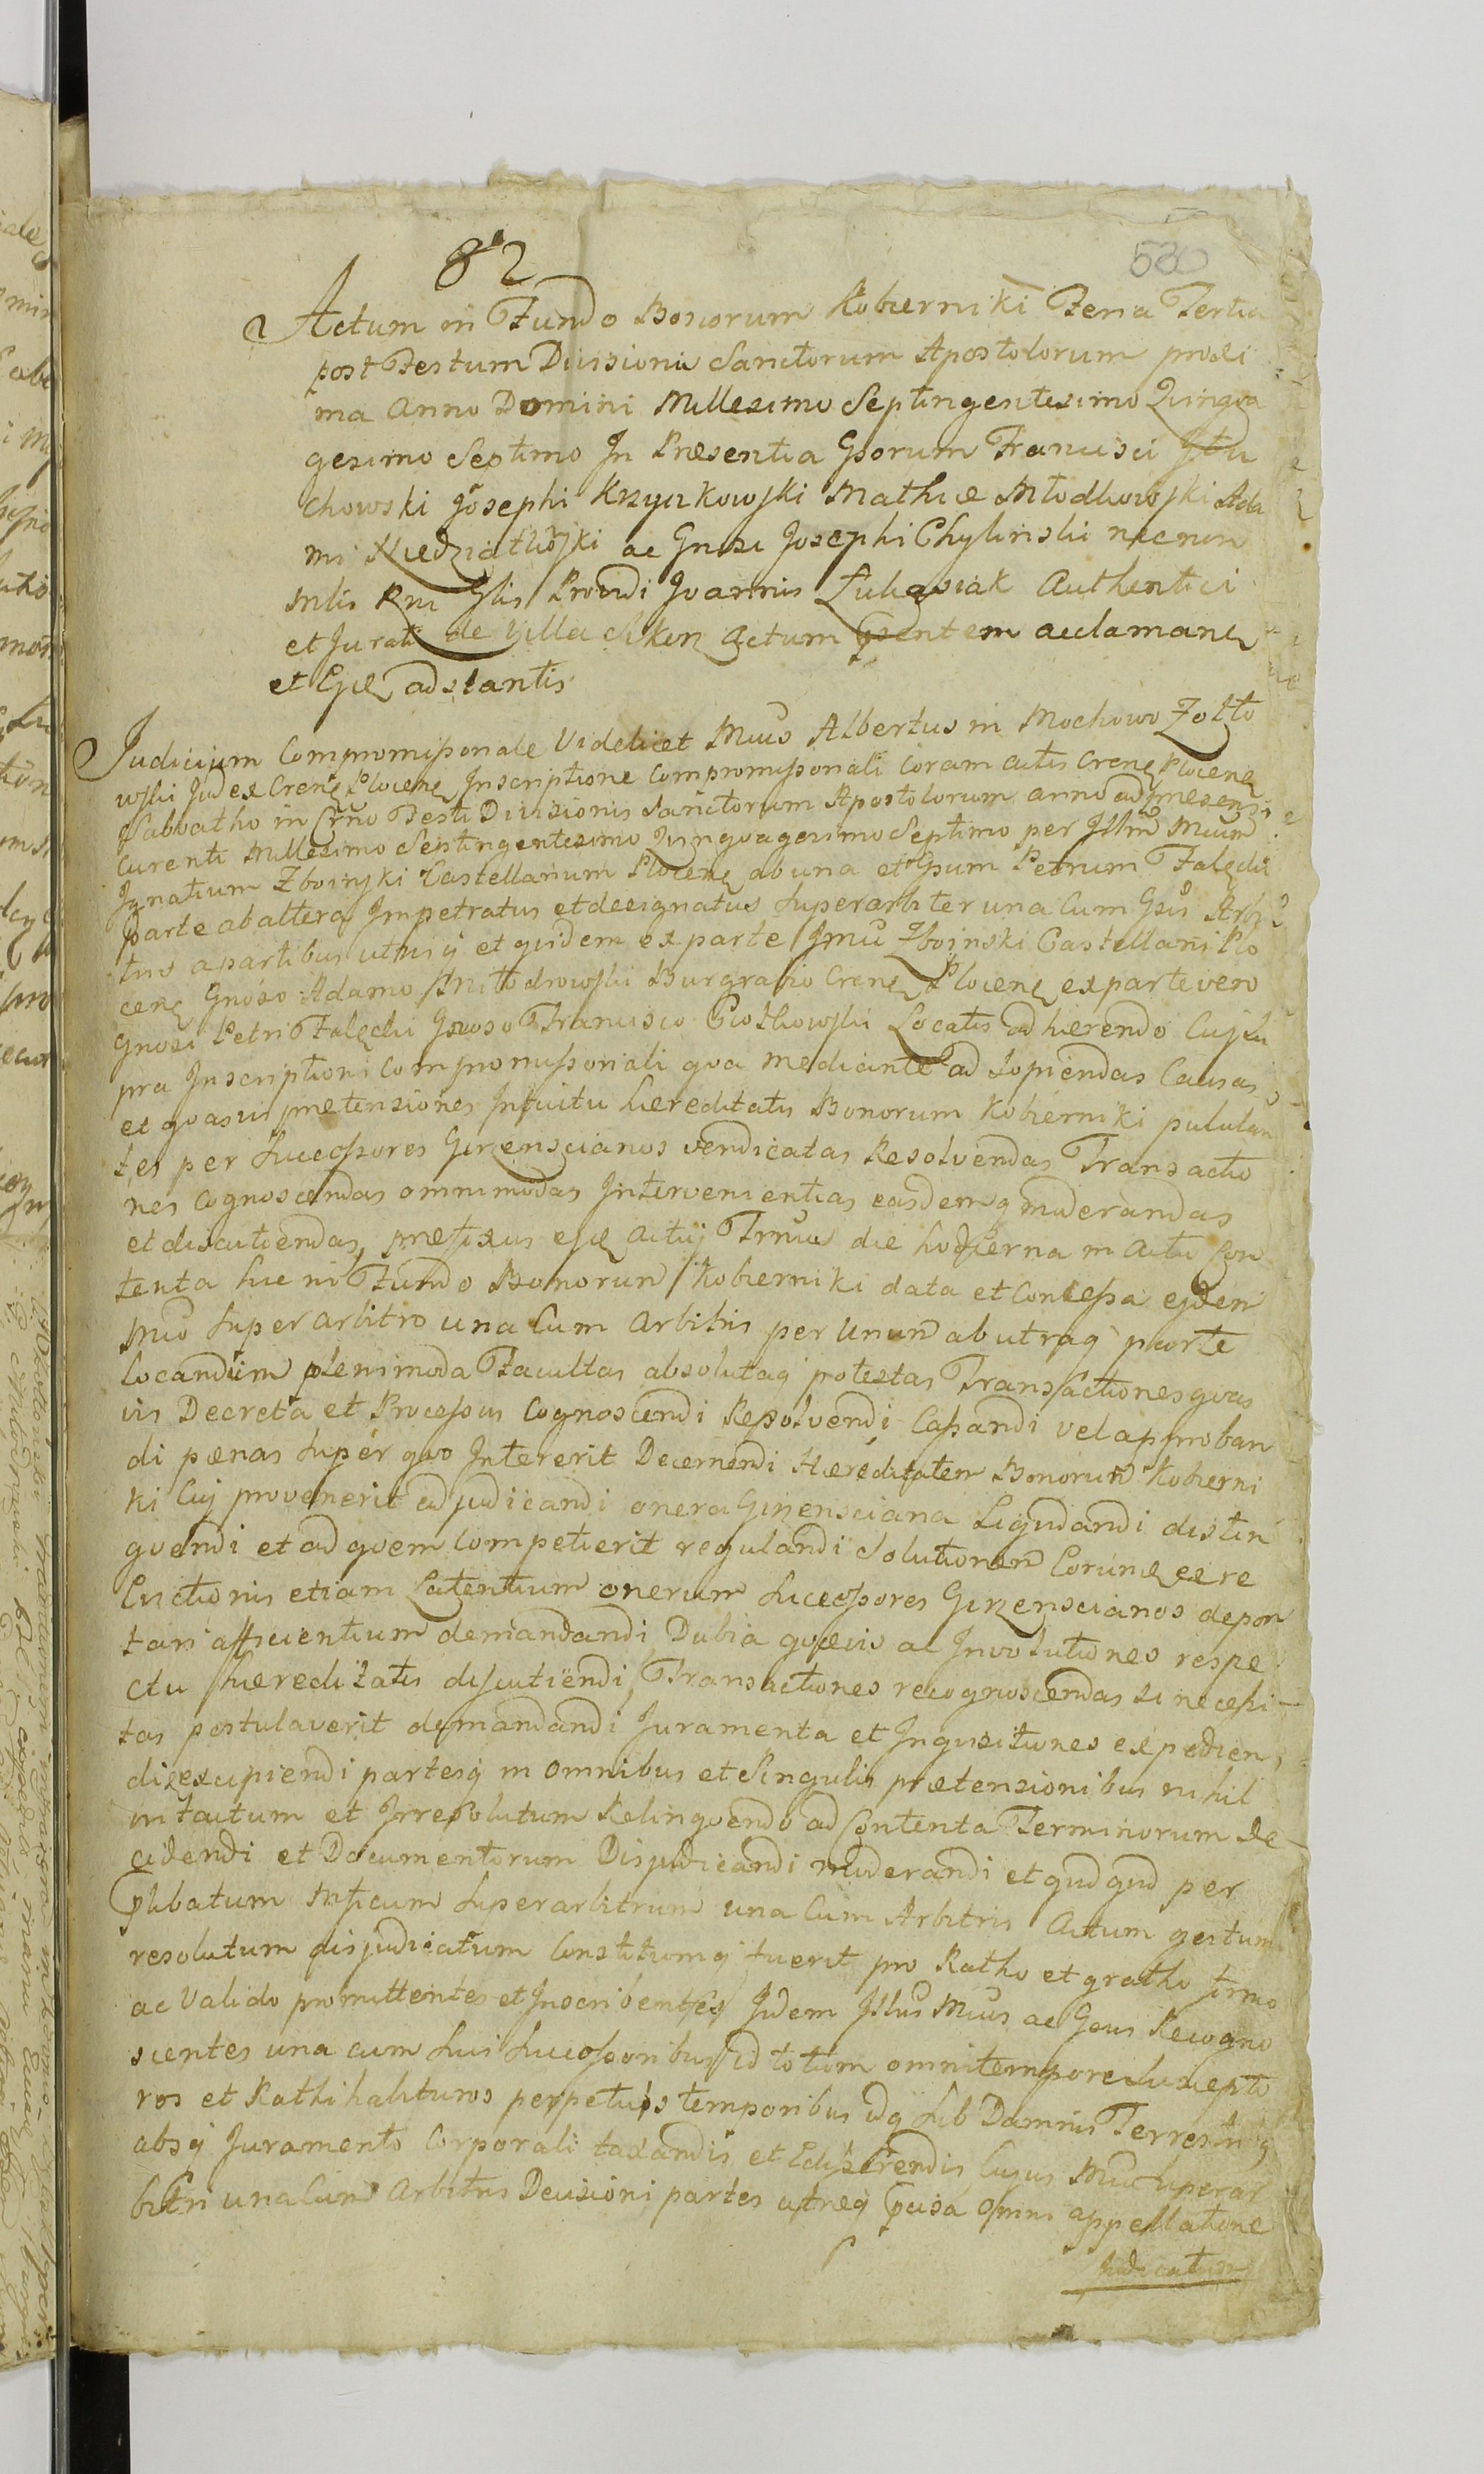 82
530
Actum in Fundo Bonorum Kobierniki Feria Tertia
post Festum Divisionis Sanctorum Apostolorum proxi
ma Anno Domini Millesimo Septingentesimo Qvinqva
gesimo Septimo In Præsentia Gsorum Francisci
chowski Josephi Krzyczkowski Mathiæ Młodkowski Ada
mi Niedziałkowski ac Gnosi Josephi Chylinski necnon
Mlis Rni Glis Providi Joannis Łukasiak Authentici
et Jurati de Villa Sikorz Actum acclamane
et Ejæ adstantis
Judicium Compromissonale Videlicet Mcus Albertus in Mochowo Zołto
wski Judex Crens Plocens Inscriptione Compromissonali coram actis Crens Plocens
Sabbatho in Crno Festi Divisionis Sanctorum Apostolorum anno ad præsens
curenti Millesimo Septingentesimo Qvinqvagesimo Septimo per Illm Mcum
Ignatium Zboinski Castellanum Plocens ab una et Gsum Petrum Falęcki
parte ab altera Impetratus et designatus Superarbiter una Cum Gsis Arbi
tris a partibus utrisq et qvidem ex parte Jmci Zboinski Castellani Plo
cens Gnoso Adamo Młodrowski Burgrabio Crens Plocens ex parte vero
Gnosi Petri Falęcki Gnoso Francisco Piotkowski Locatis adhærendo Cujsu
pra Inscriptioni Compromissonali qva mediante ad Sopiendas Causas
et qvasvis prætensiones Intuitu hæreditatis Bonorum Kobierniki pululan
tes per Successores Girzenscianos vendicatas Resolvendas Transactio
nes Cognoscendas omnimodas Intervenientias easdemq moderandas
et discutiendas, præfixus esse actuj Trnus die hodierna in Actu Con
tenta hic in Fundo Bonorum Kobierniki data et Concessa ejdem
Mco Superarbitro una Cum Arbitris per Unum ab utraq parte
Locandum plenimoda Facultas absolutaq potestas Transactiones qvas
vis Decreta et Processus Cognoscendi Resolvendi Cassandi vel approban
di pænas super qvo Intererit Decernendi Hæreditatem Bonorum Kobierni
ki Cuj provenerit adjudicandi onera Girzensciana Liqvidandi distin
gvendi et ad qvem Competierit regulandi Solutionem Eorumq ære
Evictionis etiam Latentium onerum Successores Girzenscianos depor
tari afficientium demandandi Dubia qvævis ac Involutiones respe
ctu hæreditatis discutiendi, Transactiones recognoscendas si necessi
tas postulaverit demandandi Juramenta et Inqvisitiones expedien
di excipiendi partesq in omnibus et Singulis prætensionibus nihil
intactum et Irresolutum Relinqvendo ad Contenta Terminorum De
cidendi et Documentorum Disjudicandi moderandi et qvidqvid per
plibatum Mficum Superarbitrum una Cum Arbitris Actum gestum
resolutum disjudicatum Constitumq fuerit pro Ratho et gratho firmo
ac Valido promittentes et Inscribentes Idem Illus Mcus ac Gsus Recogno
scentes una cum Suis Successoribus id totum omni tempore Suscepto
ros et Rathihabituros perpetuis temporibus idq Sub Damnis Terrestribq
absq Juramento Corporali taxandis et Edisserendis Cujus Mci Superar
bitri una Cum Arbitris Decisioni partes utræq omni appellatione